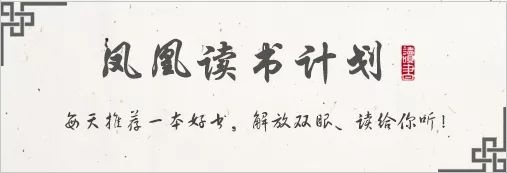 凤凰读书计划
读书
每天推荐一本好书。解放双眼、读给你听！